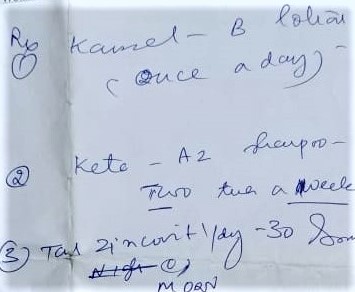 Rx
① Kamsel - B lotion
(Once a day)
② Keto - AZ Shampoo -
Two times a week
③ Tab Zincovit 1/day - 30
Night
MORN